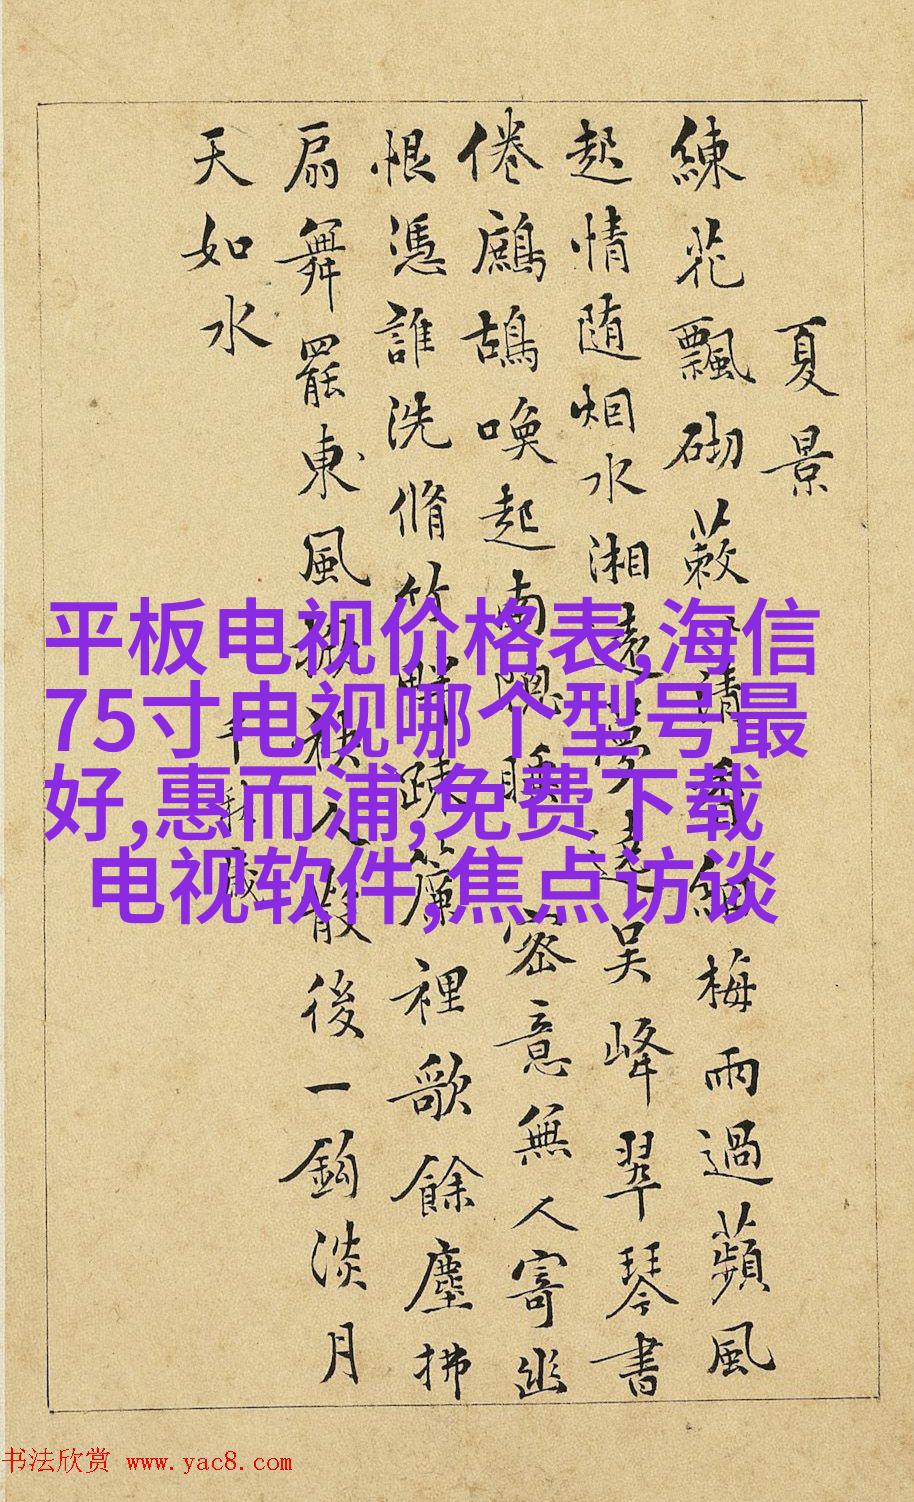 夏景
練花飄砌蔌清香細梅雨過蘋風
起情随烟水湘遠夢遶吴峰翠琴書
倦鷓鴣喚起南睡密意無人寄幽
恨憑誰洗脩竹畔疎簾裡歌餘塵拂
扇舞罷東風掀袂人散後一鈎淡月
天如水
千秋歲
平板电视价格表,海信
75寸电视哪个型号最
好,惠而浦,免费下载
电视软件,焦点访谈
书法欣赏 www.yac8.com